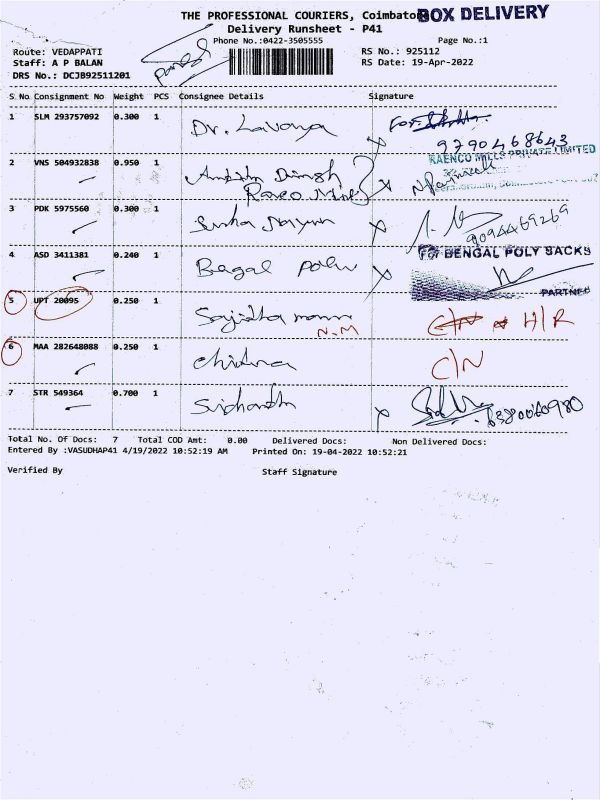 THE PROFESSIONAL COURIERS, Coimbatore
BOX DELIVERY
Delivery Runsheet - P41
Phone No.:0422-3505555
Page No.:1
Route: VEDAPPATI
RS No.: 925112
Staff: A P BALAN
RS Date: 19-Apr-2022
DRS No.: DCJB92511201
S No Consignment No Weight PCS Consignee Details Signature
1 SLM 293757092 0.300 1 Dr. Lavanya For.
9790468643
2 VNS 504932838 0.950 1
RAENCO MILLS PRIVATE LIMITED
3 PDK 5975560 0.300 1
9094469269
4 ASD 3411381 0.240 1 Bagal Poly
For BENGAL POLY SACKS
PARTNER
5 UPT 20095 0.250 1 Sajitha H/R
N.M
6 MAA 282648088 0.250 1 Chitra C/N
7 STR 549364 0.700 1 Sidharth
Total No. Of Docs: 7 Total COD Amt: 0.00 Delivered Docs: Non Delivered Docs:
Entered By :VASUDHAP41 4/19/2022 10:52:19 AM Printed On: 19-04-2022 10:52:21
Verified By Staff Signature